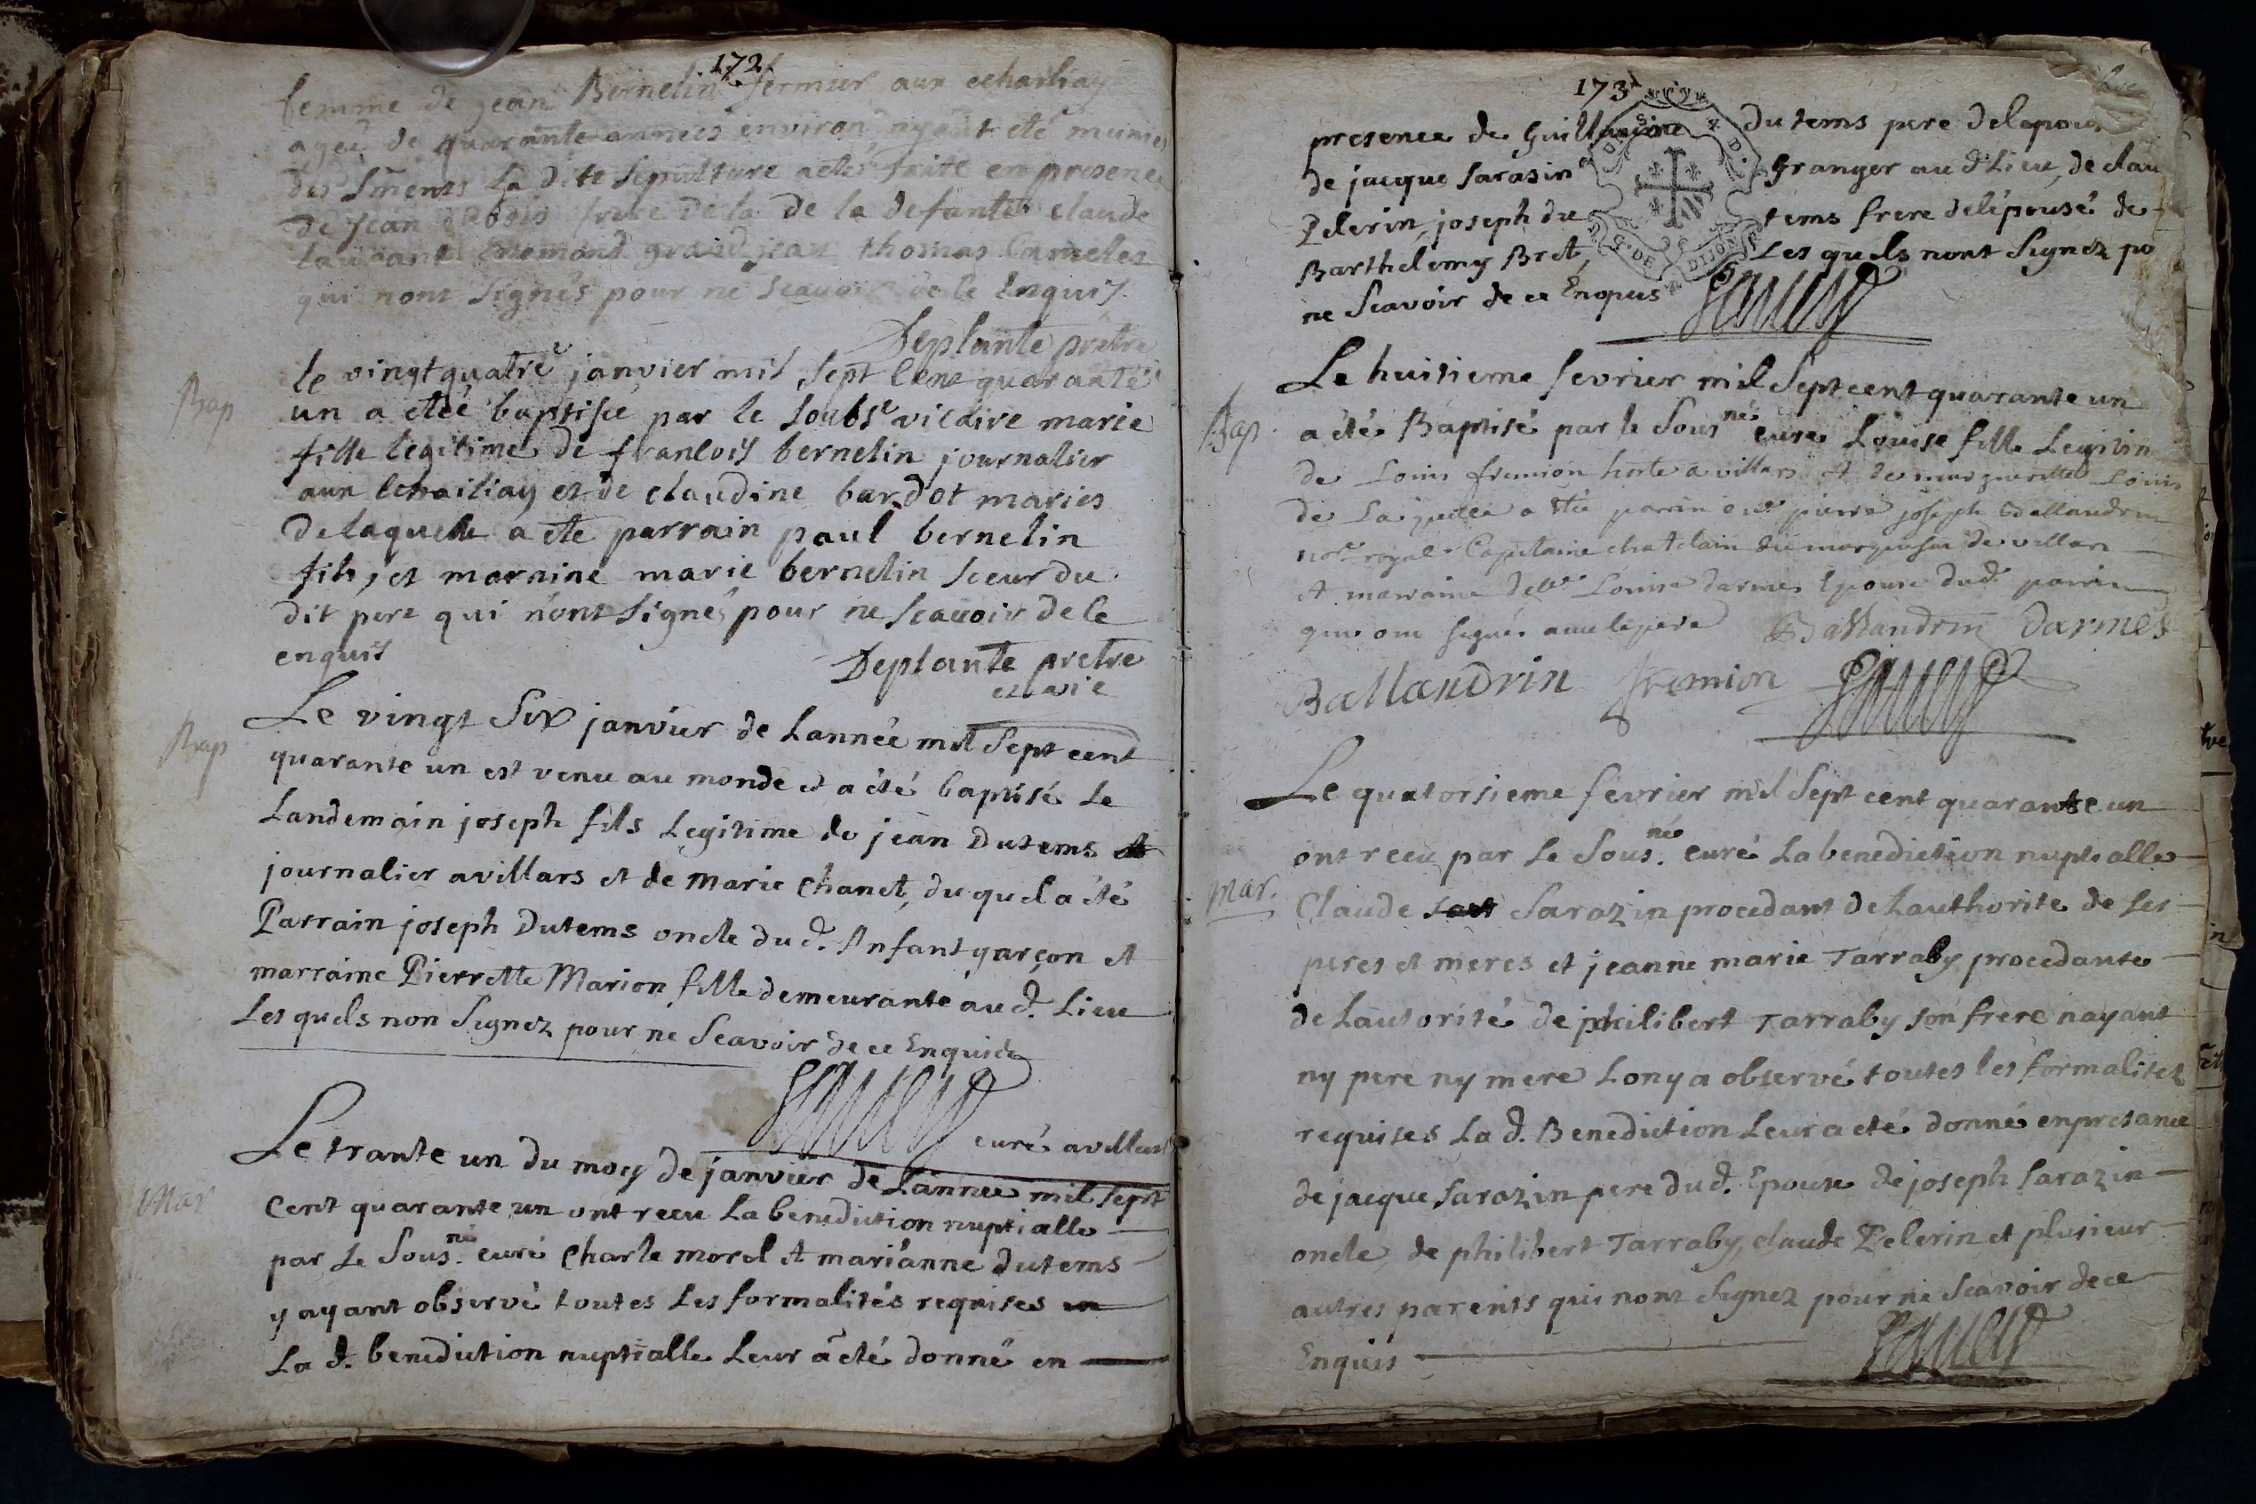 172
femme de jean Bernelin fermier aux echailiay
agee de quarante années environ ayant eté munies
des Smens la d'ite Sepulture aeté faite en presence
de jean dubois frere de la de la defante claude
grand jean thomas Cameles
qui nont Signés pour ne Scauoir de le Enquis
Deplante pretre
Bap
le vingt quatre janvier mil Sept Cent quarante
un a eteé baptisée par le Soubs.e vicaire marie
fille legitime de francois bernelin journalier
aux Echailiay et de claudine bardot maries
de laquelle a ete parrain paul bernelin
fils, et marraine marie bernelin Soeur du
dit pere qui n'ont Signés pour ne Scauoir de le
enquis
Deplante pretre
et vavie
Bap
Le vingt Six janvier de Lannée mil Sept cent
quarante un est venu au monde et a été baptisé Le
Landemain joseph fils Legitime de jean Dutems
journalier a villars et de Marie Chanet, du quel a été
Parrain joseph Dutems oncle du d. Enfant garçon et
marraine Pierrette Marion fille demeurante au d. Lieu
Les quels non Signez pour ne Scavoir de ce Enquis
curé a villars
Mar
Le trante un du moy de janvier de Lannee mil Sept
Cent quarante un ont recu La benediction nuptialle
par Le Sous.né curé Charle morel et marianne Dutems
y ayant observé toutes Les formalités requises
La d. benediction nuptialle Leur a été donné en
173
presence de Guillaume Dutems pere de lepou
de jacque Sarasin Granger au d. Lieu, de clau
Pelerin, joseph du tems frere de lépousé de
Barthelemy Bret, Les quels nont Signez po
ne Scavoir de ce Enquis
Bap
Le huitieme fevrier mil Sept cent quarante un
a été Baptisé par le Sous.né curé Louise fille Legitim
de Louis fremion hoste a villars et de marguerite Louis
de Laquelle a été parrin pierre joseph Ballandrin
no.re royal Capitaine chatelain du marquisat de villars
et marraine dell.e Louise darmes Epouse dud. parrin
qui ont signés avec le pere Ballandrin Darmes
Ballandrin fremion
Mar.
Le quatorsieme fevrier mil Sept cent quarante un
ont recu par Le Sous.né curé La benediction nuptialle
Claude Sarazin procedant de Lauthorité de Ses
peres et meres et jeanne marie Tarraby procedante
de Lautorité de philibert Tarraby Son frere nayant
ny pere ny mere Lon y a observé toutes les formalitez
requises La d. Benediction Leur a eté donné en presance
de jacque Sarazin pere du d. Epoux de joseph Sarazin
oncle, de philibert Tarraby, claude Pelerin et plusieur
autres parents qui nont Signez pour ne Scavoir de ce
Enquis